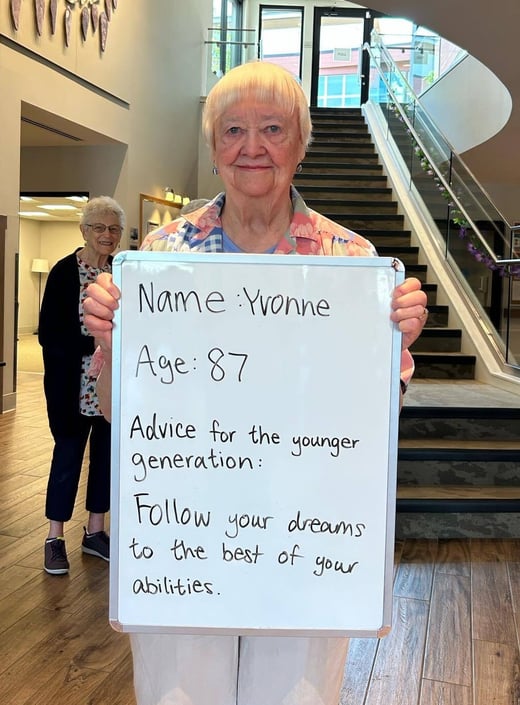 Name: Yvonne
Age: 87
Advice for the younger
generation:
Follow your dreams
to the best of your
abilities.